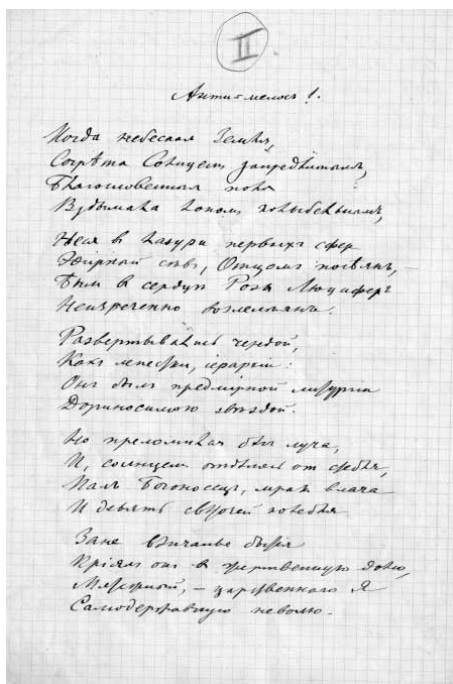 II
Антимелосъ I.
Когда небесная Земля,
Согрѣта Солнцем запредѣльнымъ,
Благословенныя поля
Вздымала лоном колыбельнымъ,
Неся в лазури первыхъ сфер
Эѳирный сѣвъ, Отцомъ посѣян, –
Был в сердцѣ Розы Люциферъ
Неизреченно возлелѣянъ.
Развертывались чередой,
Какъ лепестки, іерархіи:
Онъ былъ предмірной литургіи
Дориносимою звѣздой.
Но преломляя бѣг луча,
И, солнцем отдѣлясь от стебля,
Палъ Богоносецъ, мрак влача
И девять свѣточей колебля.
Зане вначалѣ бытія
Пріялъ он в жертвенную долю,
Мятежный, – царственного Я
Самодержавную неволю.